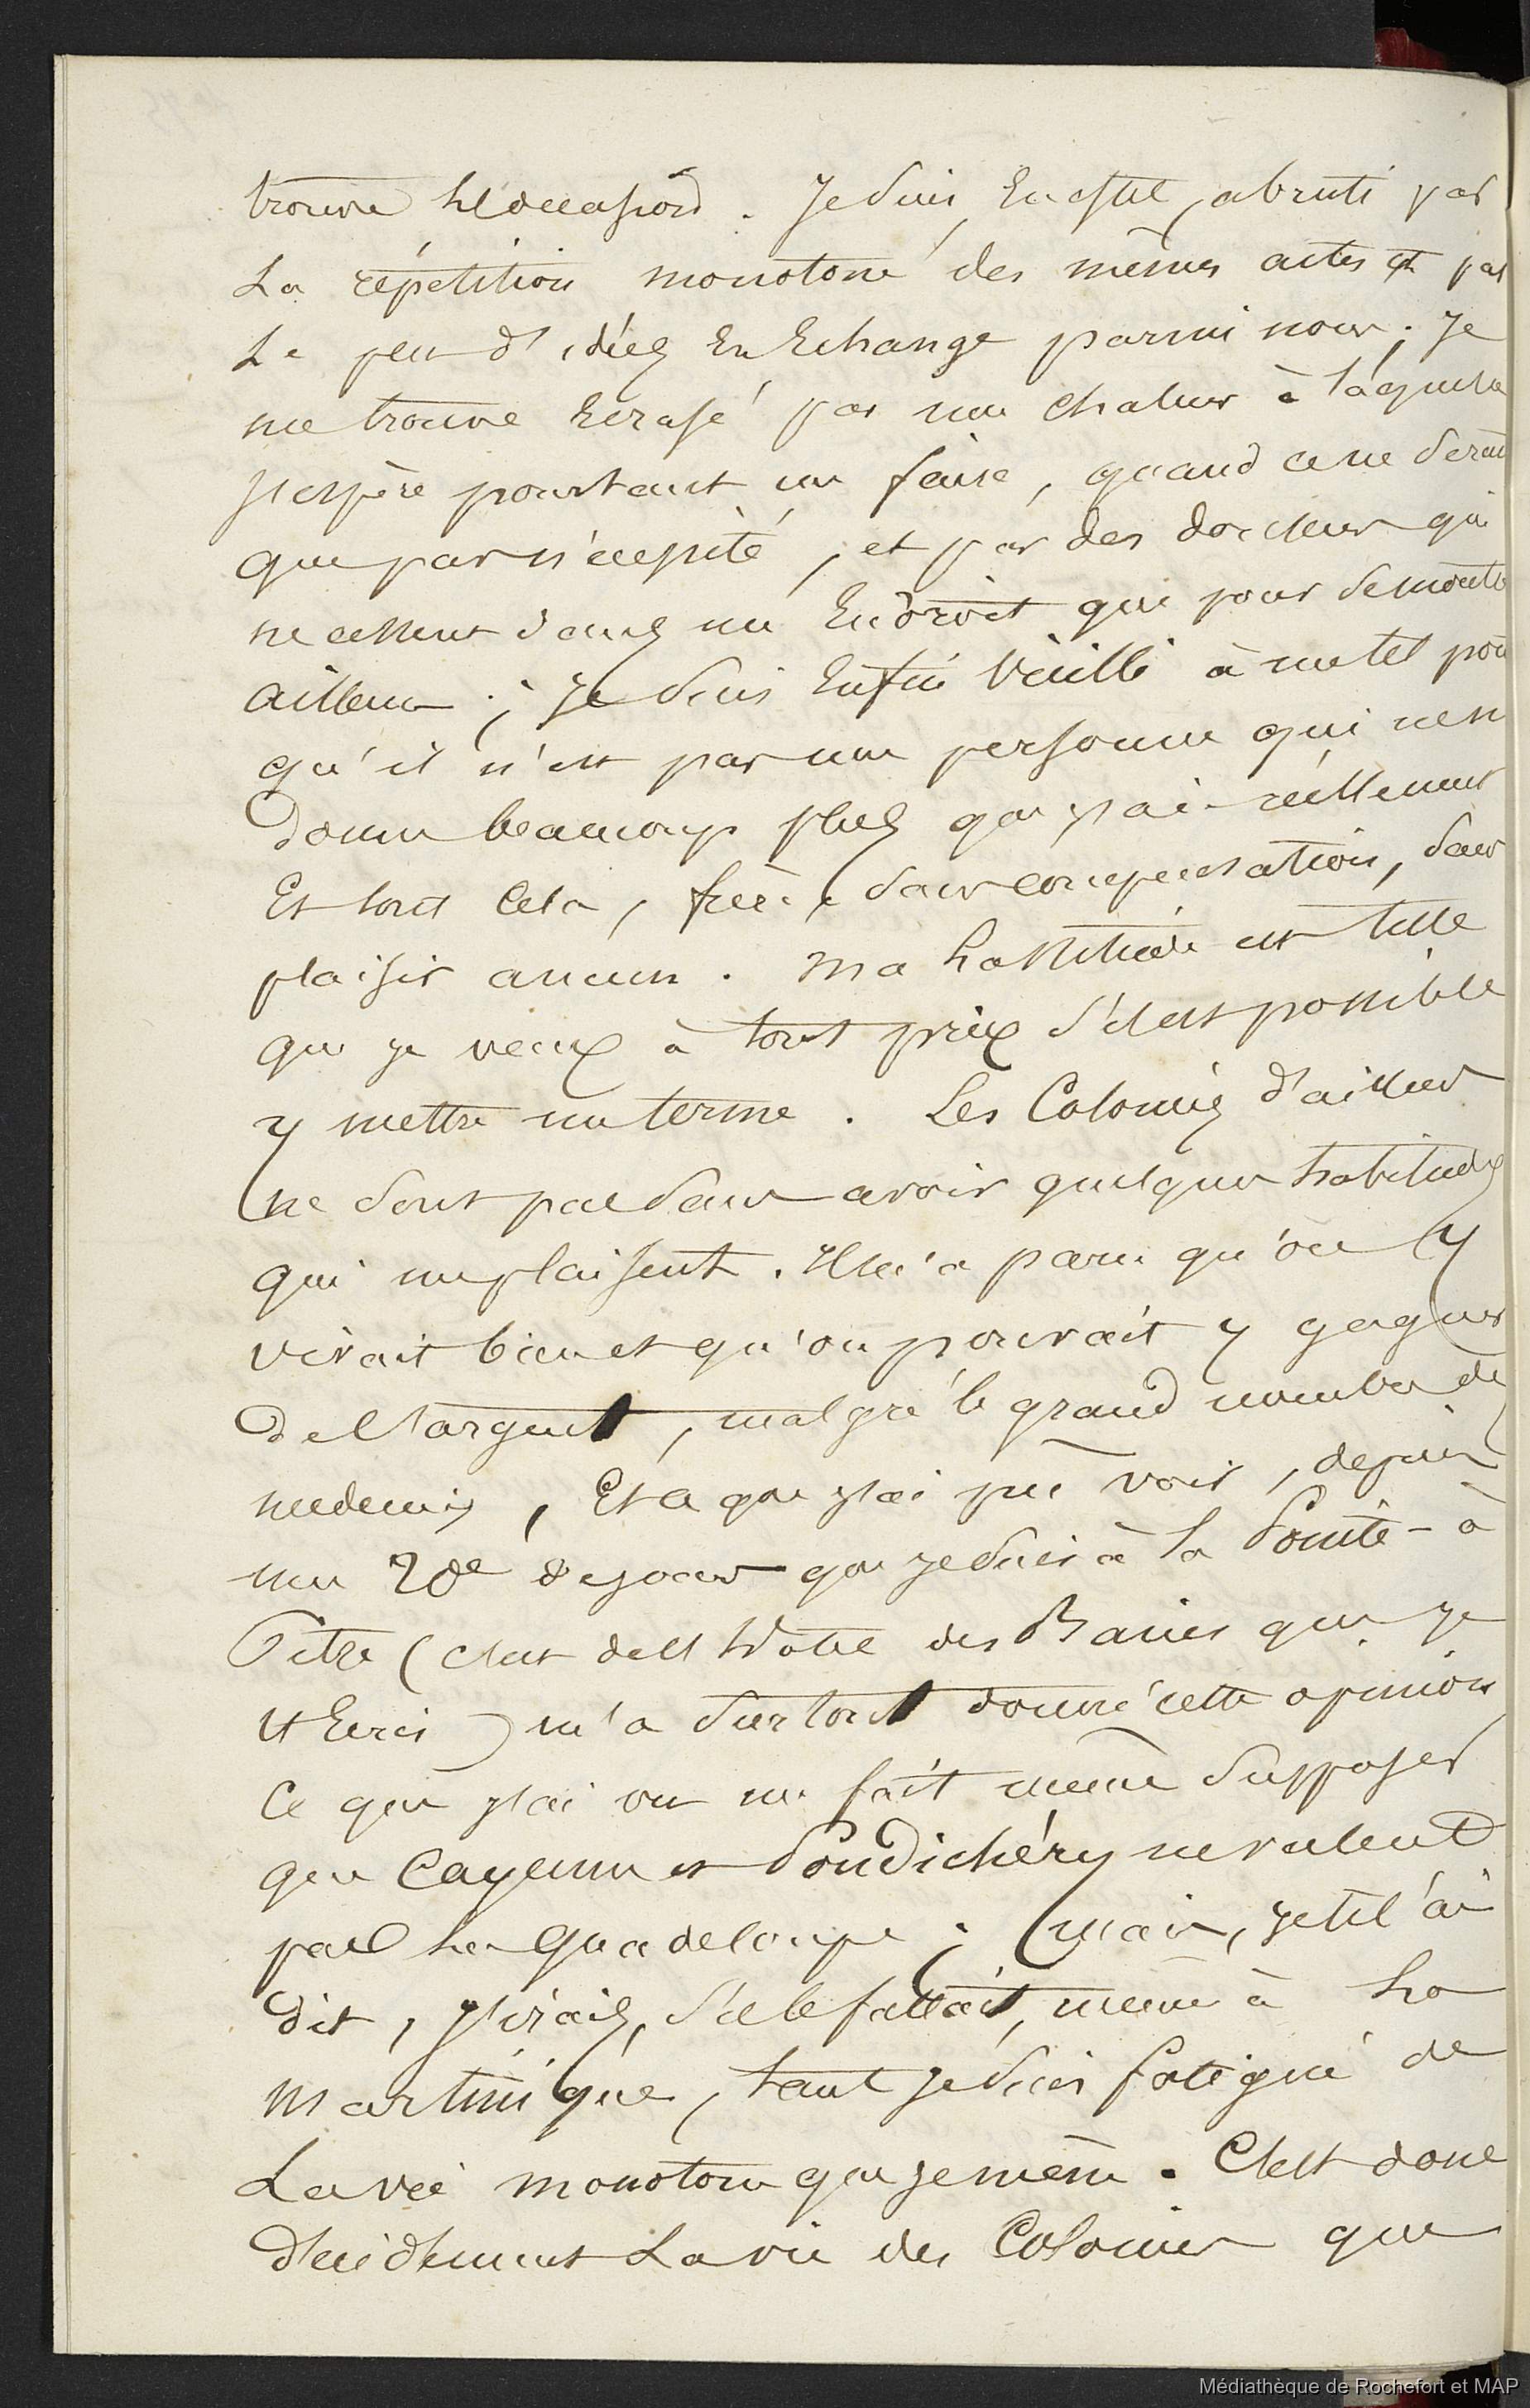 trouve l'occasion. Je suis, en effet, abruti par
La répétition monotone des mêmes actes et par
Le peu d'idées en Echange parmi nous; Je
me trouve Ecrasé par une chaleur à laquelle
j'espère pourtant me faire, quand ce ne serait
que par nécessité, et par des douleurs qui
ne cessent dans un Endroit que pour se montrer
ailleurs; Je suis Enfin vieilli à un tel point
qu'il n'est pas une personne qui ne m'en
donne beaucoup plus que j'ai réellement
Et tout cela, frère, sans compensation, sans
plaisir aucun. Ma Lassitude est telle
que je veux à tout prix s'il est possible
y mettre un terme. Les Colonies d'ailleurs
ne sont pas sans avoir quelques habitudes
qui me plaisent. Il m'a paru qu'on y
vivrait bien et qu'on pouvait y gagner
de l'argent, malgré le grand nombre de
medecins, Et ce que j'ai pu voir, depuis
une 20e de jours que je suis à la Pointe-à
Pitre (c'est de l'Hôtel des Bains que je
t'Ecris) m'a surtout donné cette opinion
Ce que j'ai vu me fait même supposer
que Cayenne et Pondichéry ne valent
pas La Guadeloupe; mais, je te l'ai
dit, j'irais, s'il le fallait, même à La
Martinique, tant je suis fatigué de
La vie monotone que je mène. C'est donc
décidément La vie des Colonies que
Médiathèque de Rochefort et MAP